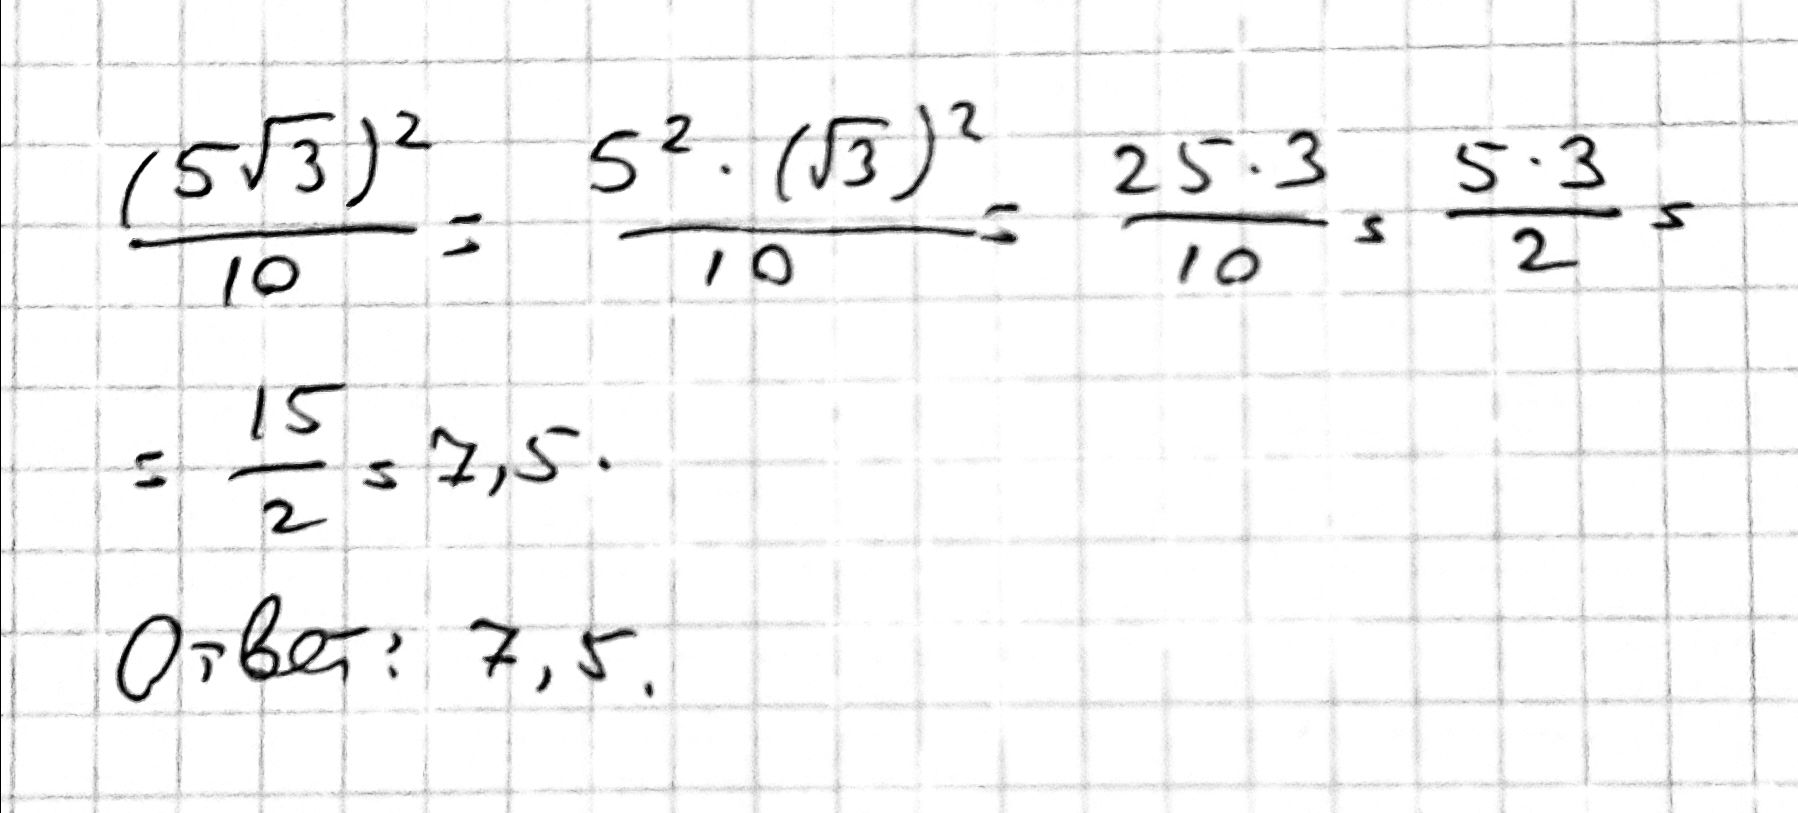 (5√3)²/10 = 5² · (√3)²/10 = 25 · 3/10 = 5 · 3/2 =
= 15/2 = 7,5.
Ответ: 7,5.